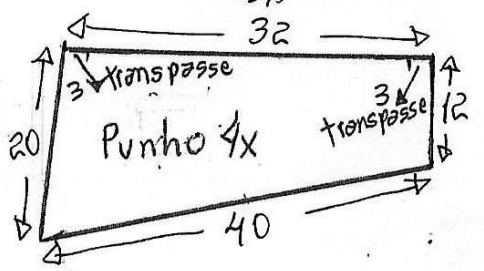 32
3 transpasse
3
transpasse
20
12
Punho 4x
40